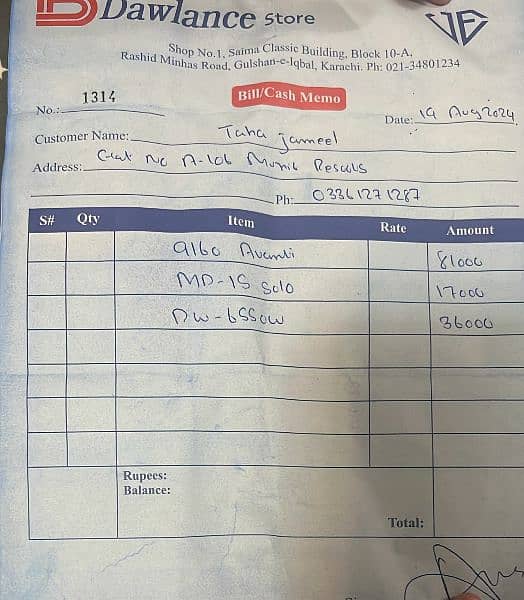 Dawlance Store
Shop No.1, Saima Classic Building, Block 10-A,
Rashid Minhas Road, Gulshan-e-Iqbal, Karachi. Ph: 021-34801234
No.: 1314
Bill/Cash Memo
Date: 19 Aug 2024
Customer Name: Taha Jameel
Address: No A-106
Ph: 03361271287
S# Qty Item Rate Amount
9160 Avanti 81000
MD-15 Solo 17000
DW-6550W 36000
Rupees:
Balance:
Total: